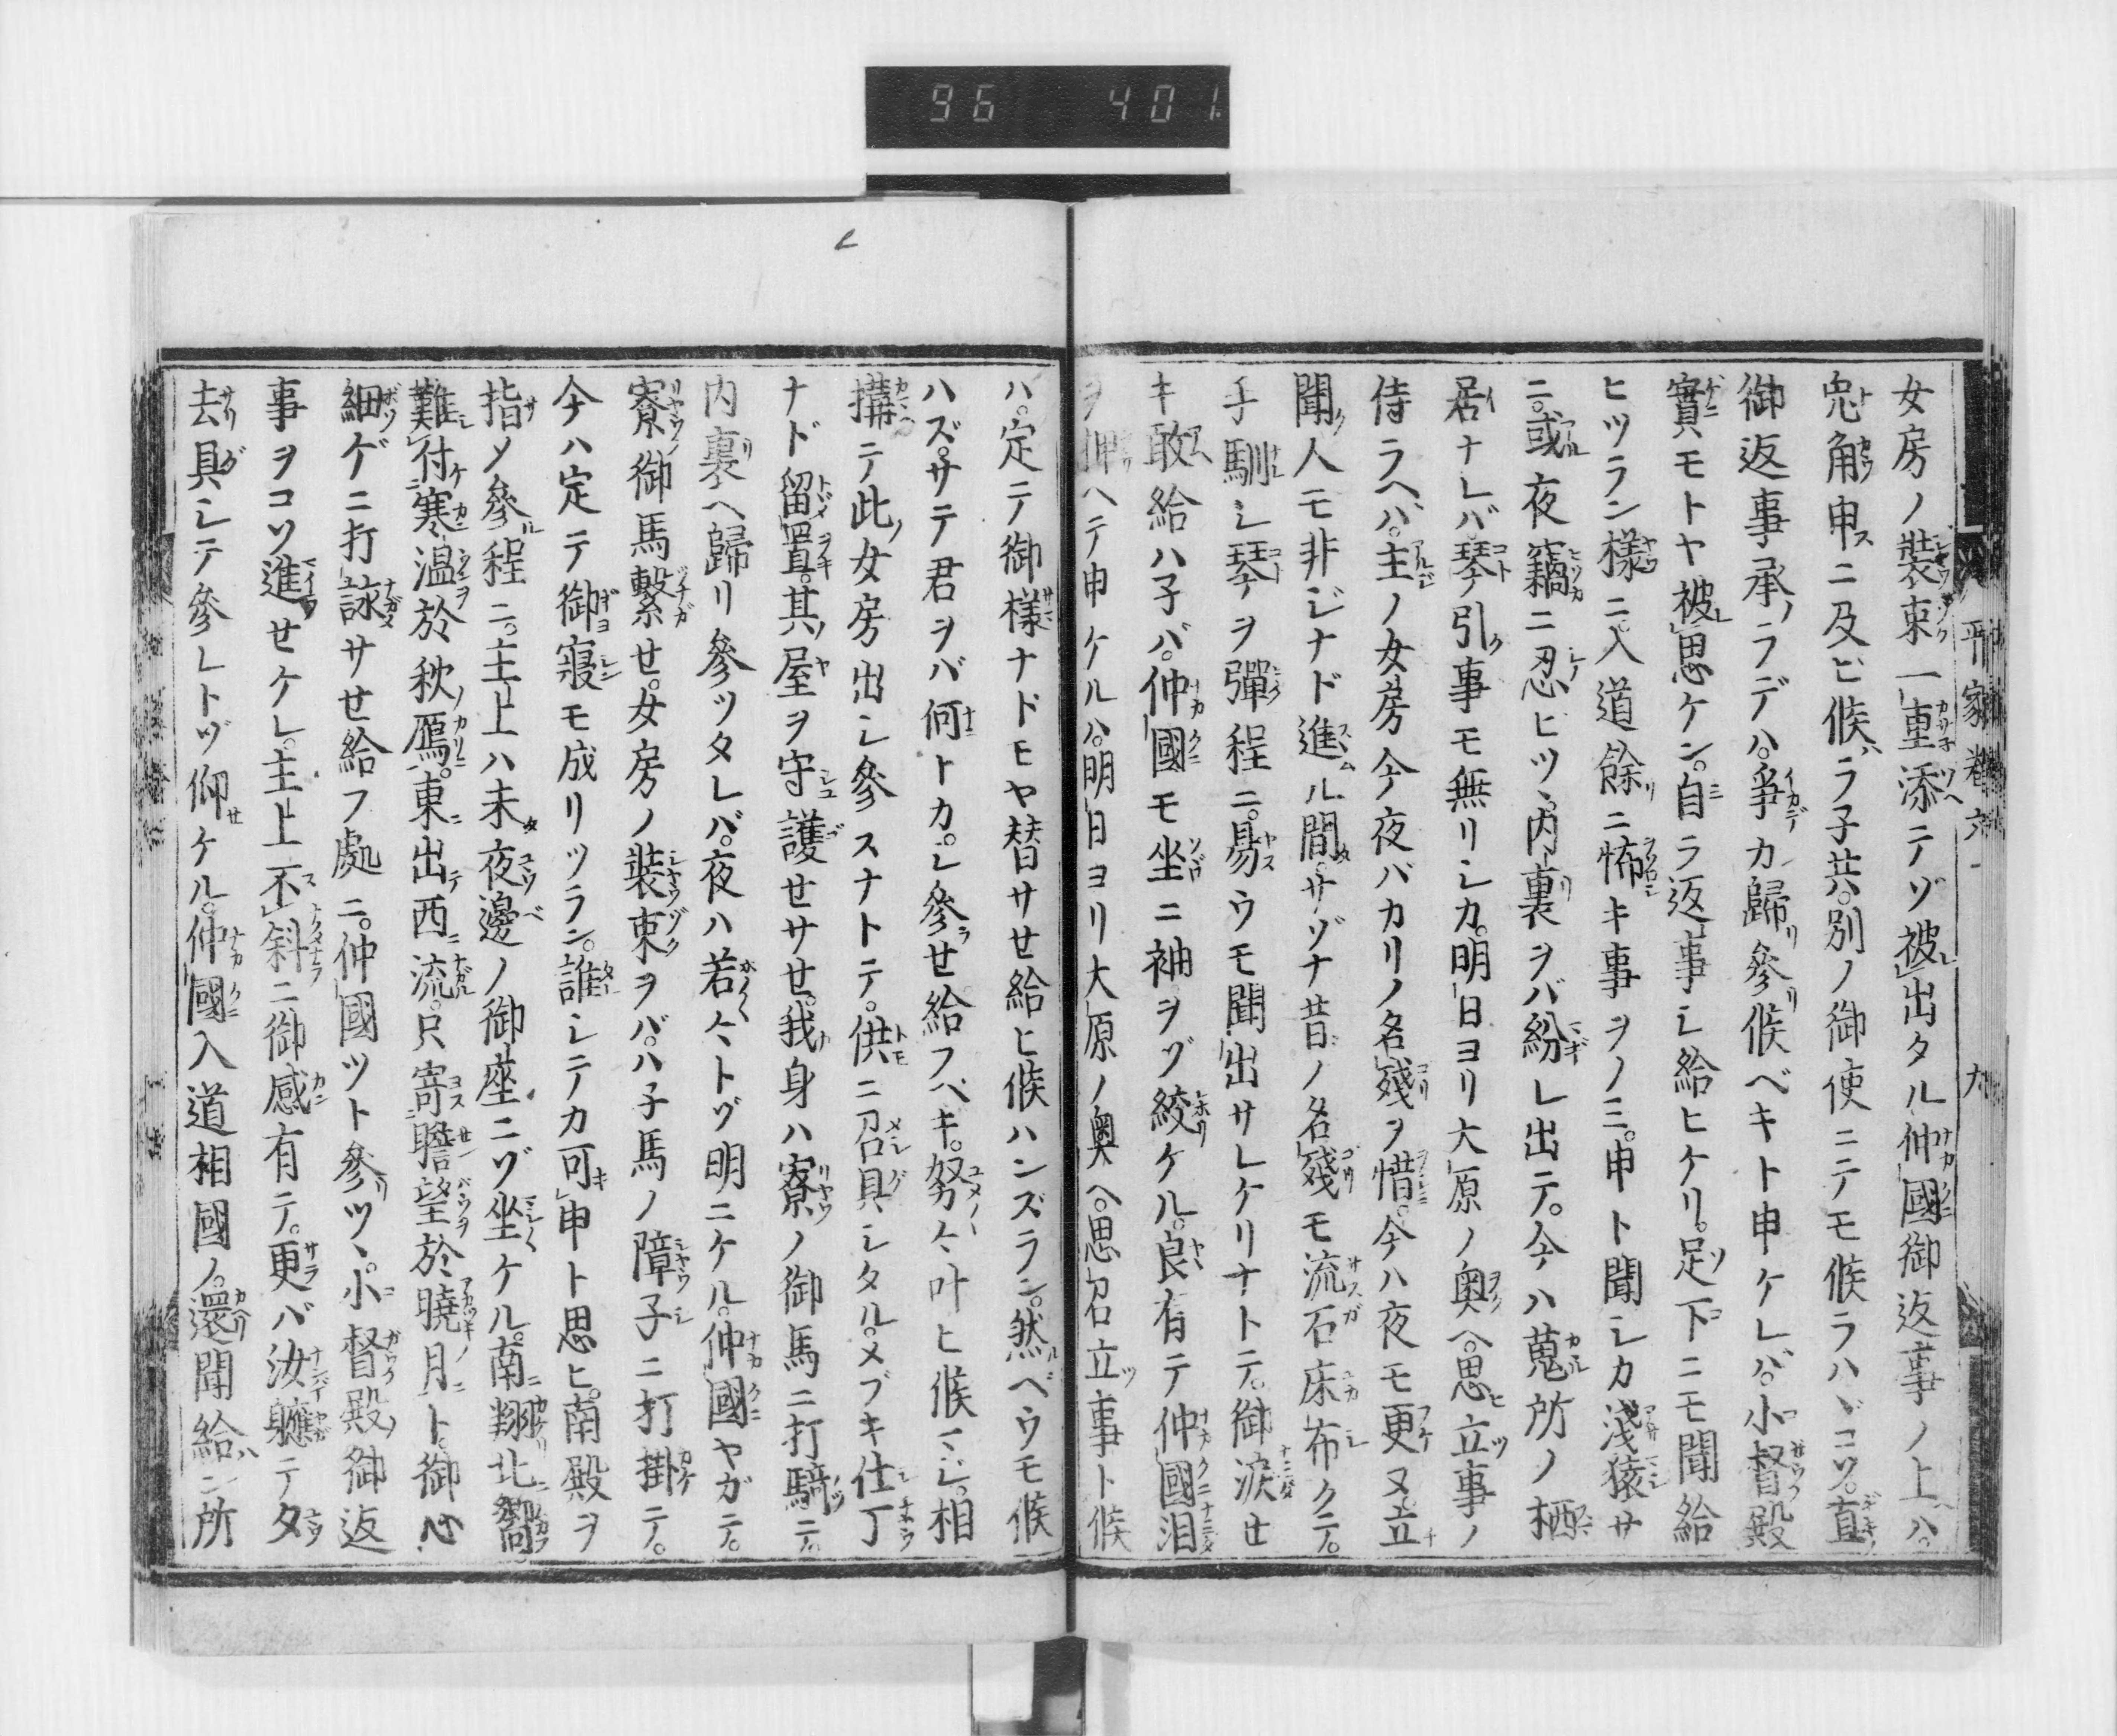 96 401
平家卷六 九
女房ノ装束一重添テゾ被出タル仲國御返事ノ上ハ。
兎角申ニ及ビ候ハラ子共。別ノ御使ニテモ候ラハヾコソ。直ノ
御返事承ノラデハ。爭カ歸參候ベキト申ケレバ。小督殿
實モトヤ被思ケン。自ラ返事シ給ヒケリ。足下ニモ聞給
ヒツラン様ニ。入道餘ニ怖キ事ヲノミ。申ト聞シカ浅猿サ
ニ。或夜竊ニ忍ビツヽ。内裏ヲバ紛レ出テ。今ハ蒐所ノ栖
居ナレバ。琴引事モ無リシカ。明日ヨリ大原ノ奥ヘ。思立事ノ
侍ラヘバ。主ノ女房今夜バカリノ名殘ヲ惜。今ハ夜モ更ヌ立
聞人モ非ジナド進ル間。サゾナ昔ノ名殘モ流石床布クテ。
手馴シ琴ヲ彈程ニ。易ウモ聞出サレケリナトテ。御涙セ
キ敢給ハ子バ。仲國モ坐ニ袖ヲゾ絞ケル。良有テ仲國泪
ヲ押ヘテ申ケルハ。明日ヨリ大原ノ奥ヘ。思召立事ト候
ハ。定テ御様ナドモヤ替サせ給ヒ候ハンズラン。然ベウモ候
ハズ。サテ君ヲバ何トカ。シ參せ給フベキ。努々叶ヒ候マジ。相
搆テ此女房出シ參スナトテ。供ニ召具シタル。メブキ仕丁
ナド留置。其ノ屋ヲ守護せサせ。我身ハ寮ノ御馬ニ打騎テ。
内裏ヘ歸リ參ツタレバ。夜ハ若々トゾ明ニケル。仲國ヤガテ。
寮御馬繋せ。女房ノ装束ヲバ。ハ子馬ノ障子ニ打掛テ。
今ハ定テ御寢モ成リツラン。誰シテカ可申ト思ヒ。南殿ヲ
指メ參程ニ。主上ハ未夜邊ノ御座ニゾ坐ケル。南翔北嚮。
難付寒温於秋鴈。東出西流。只寄瞻望於曉月ト。御心
細ゲニ打詠サせ給フ處ニ。仲國ツト參ツヽ。小督殿ノ御返
事ヲコソ進せケレ。主上不斜ニ御感有テ。更バ汝軈テタ
去具シテ參レトゾ仰ケル。仲國入道相國ノ。還聞給ハン所